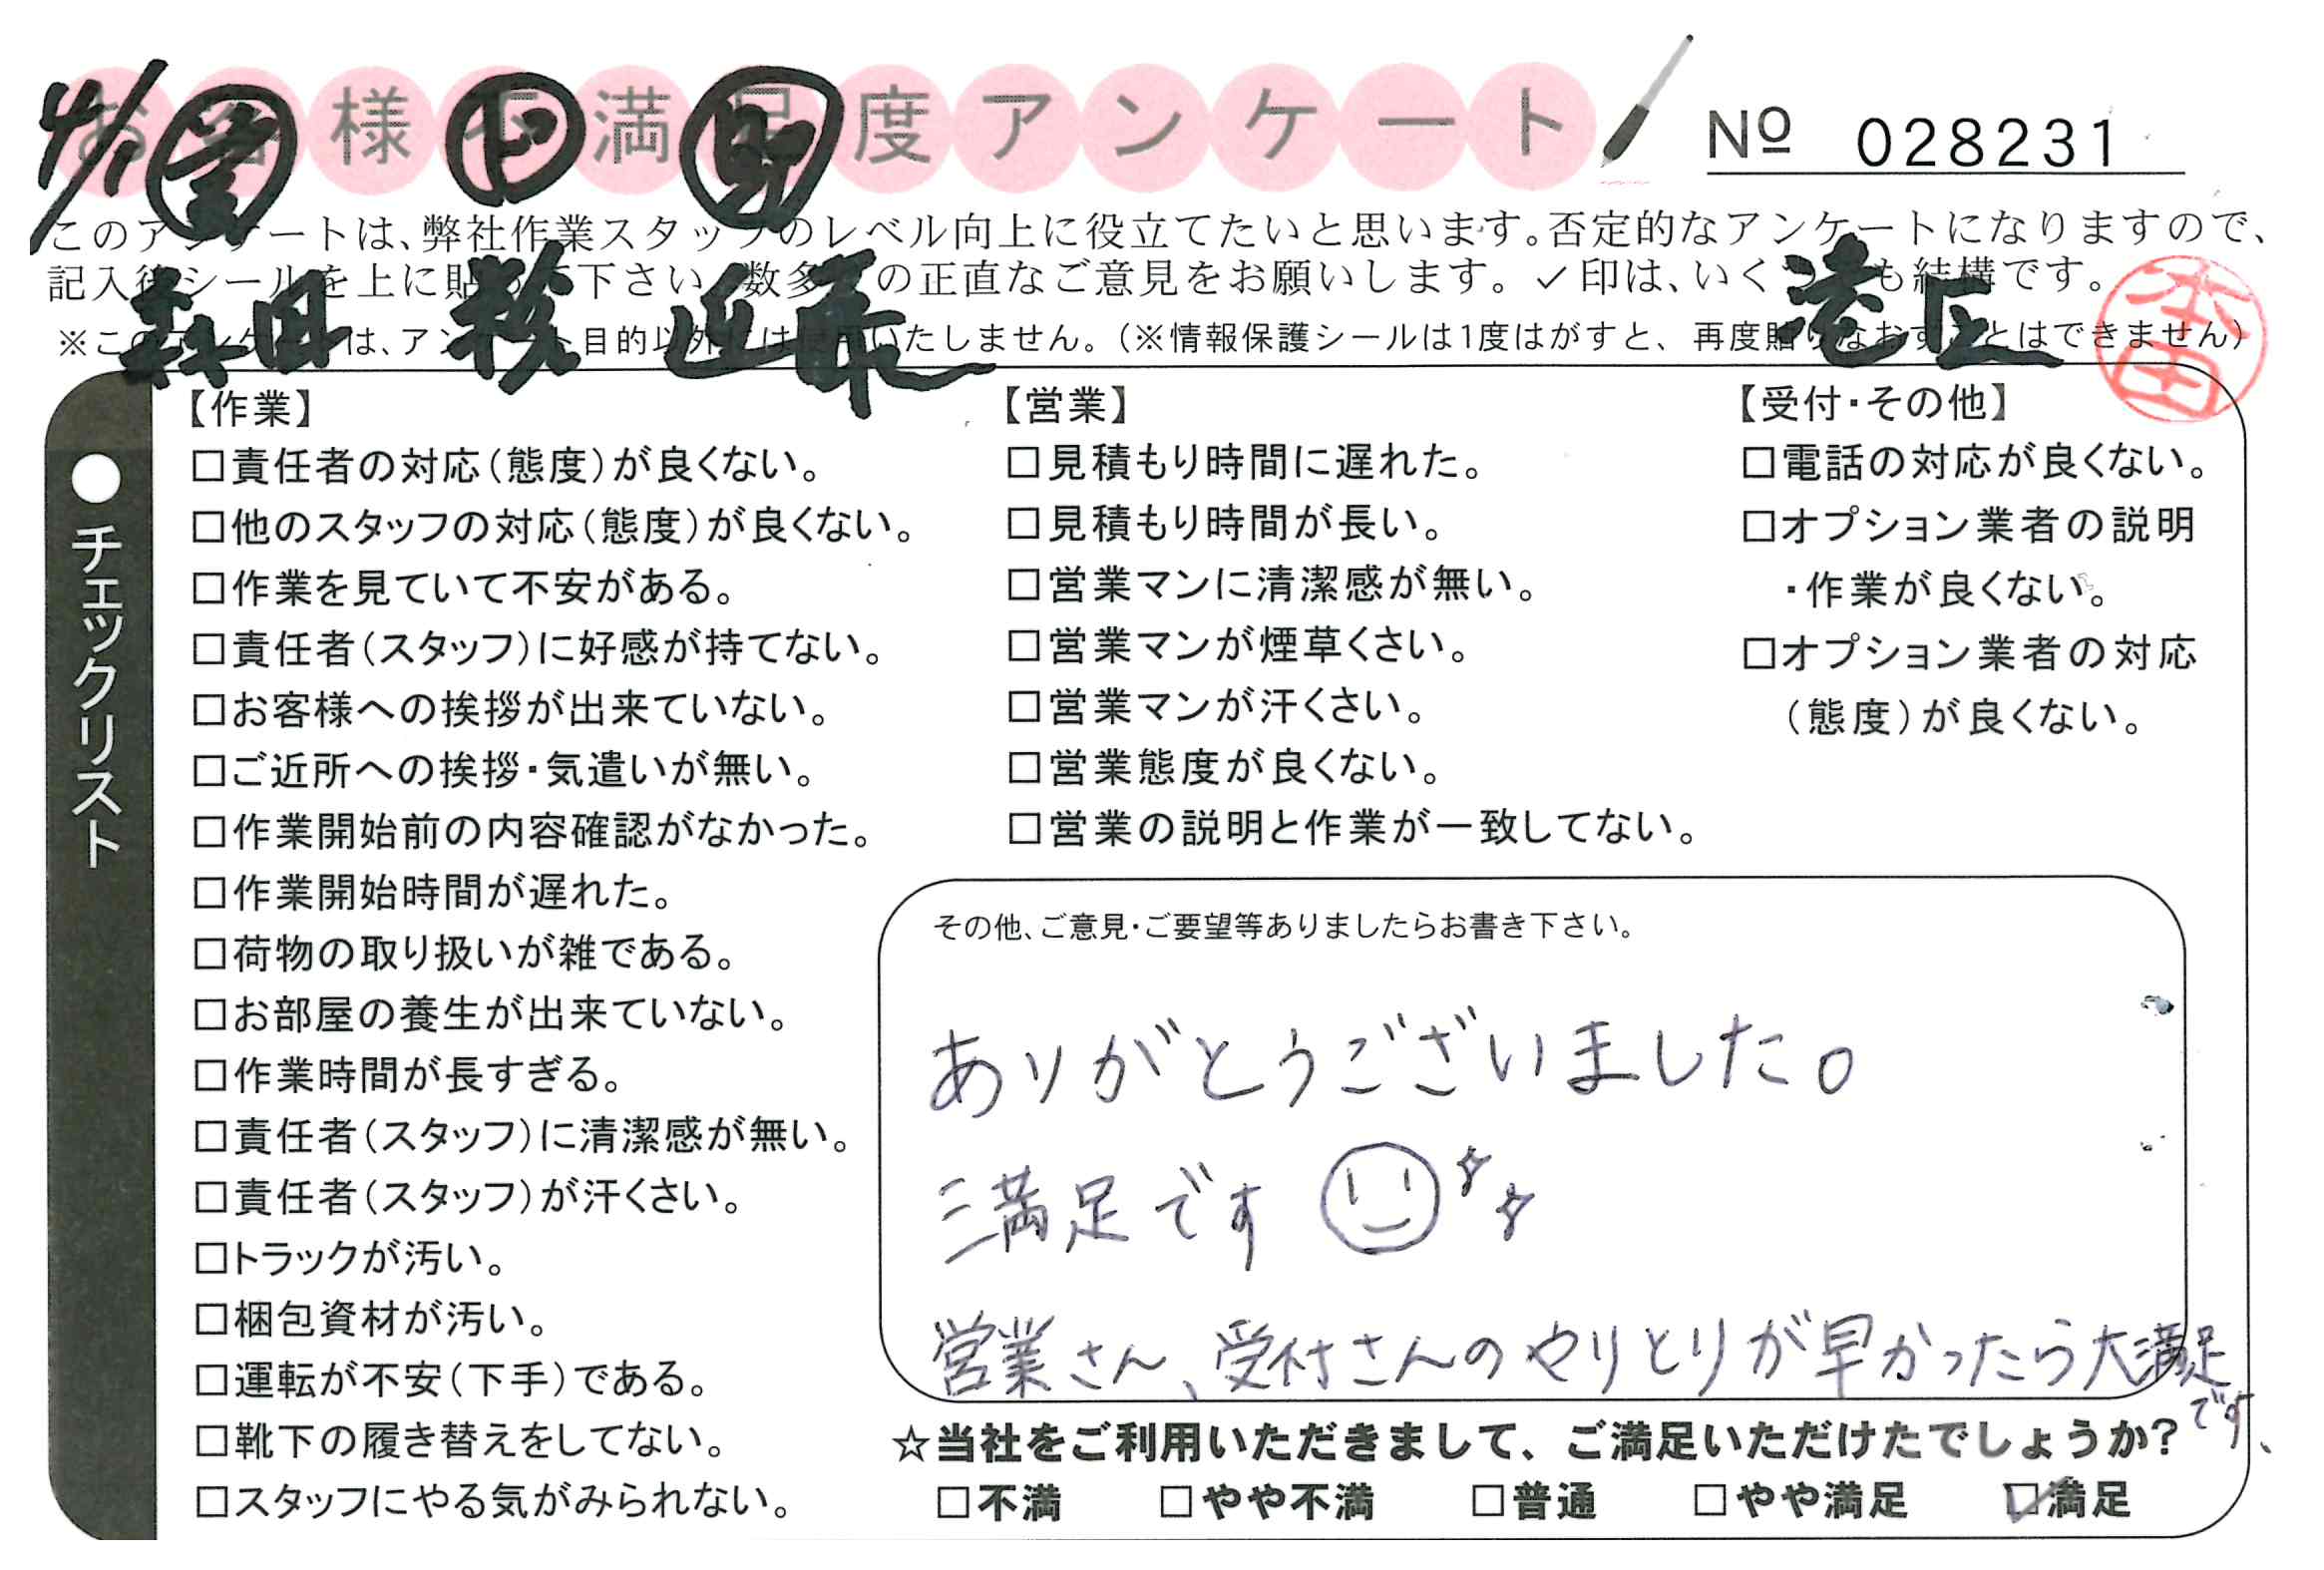 お客様不満足度アンケート
№ 028231
4/1
このアンケートは、弊社作業スタッフのレベル向上に役立てたいと思います。否定的なアンケートになりますので、
記入後シールを上に貼って下さい。数多くの正直なご意見をお願いします。✓印は、いくつでも結構です。
※このアンケートは、アンケート目的以外には使用いたしません。(※情報保護シールは1度はがすと、再度貼りなおすことはできません)
森田
本田
●チェックリスト
【作業】
□責任者の対応(態度)が良くない。
□他のスタッフの対応(態度)が良くない。
□作業を見ていて不安がある。
□責任者(スタッフ)に好感が持てない。
□お客様への挨拶が出来ていない。
□ご近所への挨拶・気遣いが無い。
□作業開始前の内容確認がなかった。
□作業開始時間が遅れた。
□荷物の取り扱いが雑である。
□お部屋の養生が出来ていない。
□作業時間が長すぎる。
□責任者(スタッフ)に清潔感が無い。
□責任者(スタッフ)が汗くさい。
□トラックが汚い。
□梱包資材が汚い。
□運転が不安(下手)である。
□靴下の履き替えをしてない。
□スタッフにやる気がみられない。
【営業】
□見積もり時間に遅れた。
□見積もり時間が長い。
□営業マンに清潔感が無い。
□営業マンが煙草くさい。
□営業マンが汗くさい。
□営業態度が良くない。
□営業の説明と作業が一致してない。
【受付・その他】
□電話の対応が良くない。
□オプション業者の説明
・作業が良くない。
□オプション業者の対応
(態度)が良くない。
その他、ご意見・ご要望等ありましたらお書き下さい。
ありがとうございました。
満足です
営業さん、受付さんのやりとりが早かったら大満足
です、
☆当社をご利用いただきまして、ご満足いただけたでしょうか?
□不満 □やや不満 □普通 □やや満足 ☑満足